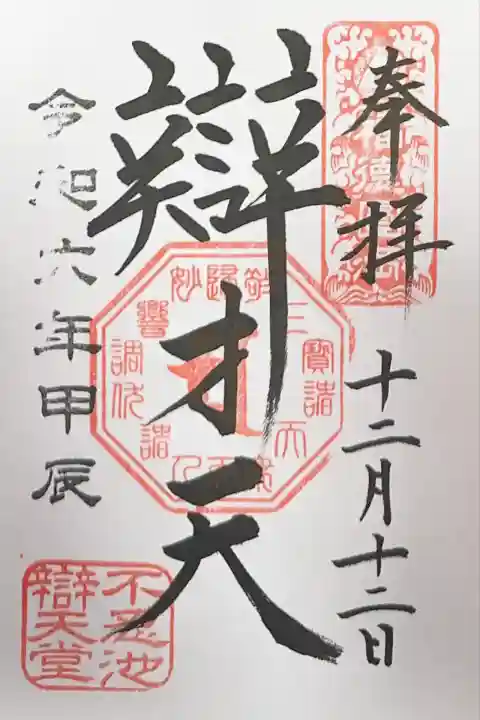 奉拝
十二月十二日
辯才天
令和六年甲辰
不忍池
辯天堂